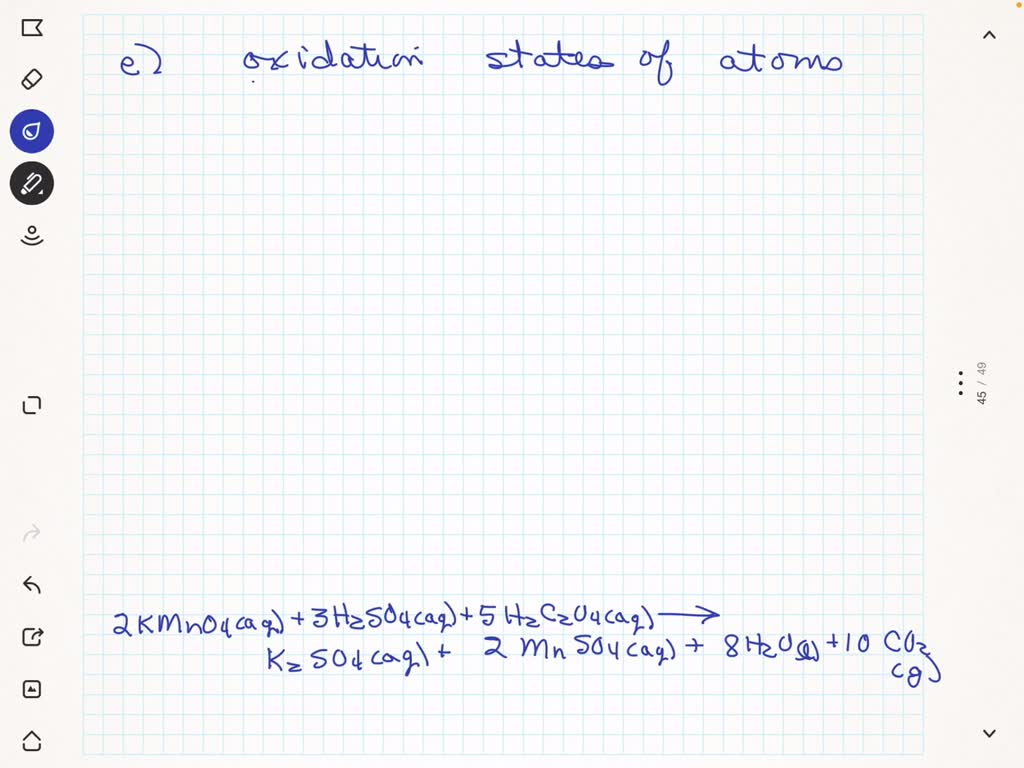 e) oxidation states of atoms
45 / 49
2KMnO4(aq) + 3H2SO4(aq) + 5H2C2O4(aq) →
K2SO4(aq) + 2MnSO4(aq) + 8H2O(l) + 10 CO2
(g)